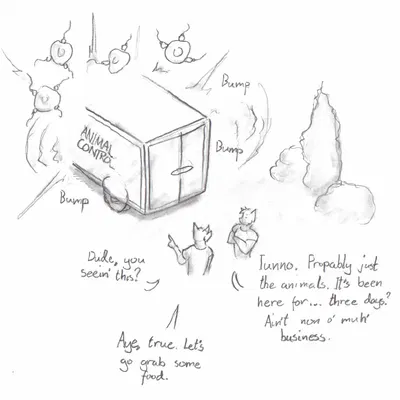 Bump
Bump
Bump
ANIMAL
CONTROL
Dude, you
seein' this?
Iunno. Propably just
the animals. It's been
here for... three days?
Ain't non o' muh'
business.
Aye, true. Let's
go grab some
food.